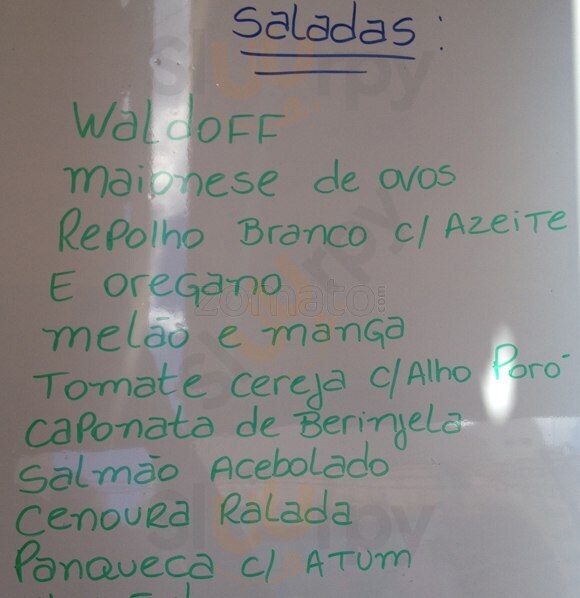 Saladas:
WaldoFF
maionese de ovos
Repolho Branco c/ Azeite
E oregano
melão e manga
Tomate cereja c/Alho Poró
caponata de Berinjela
salmão Acebolado
cenoura Ralada
Panqueca c/ ATUM